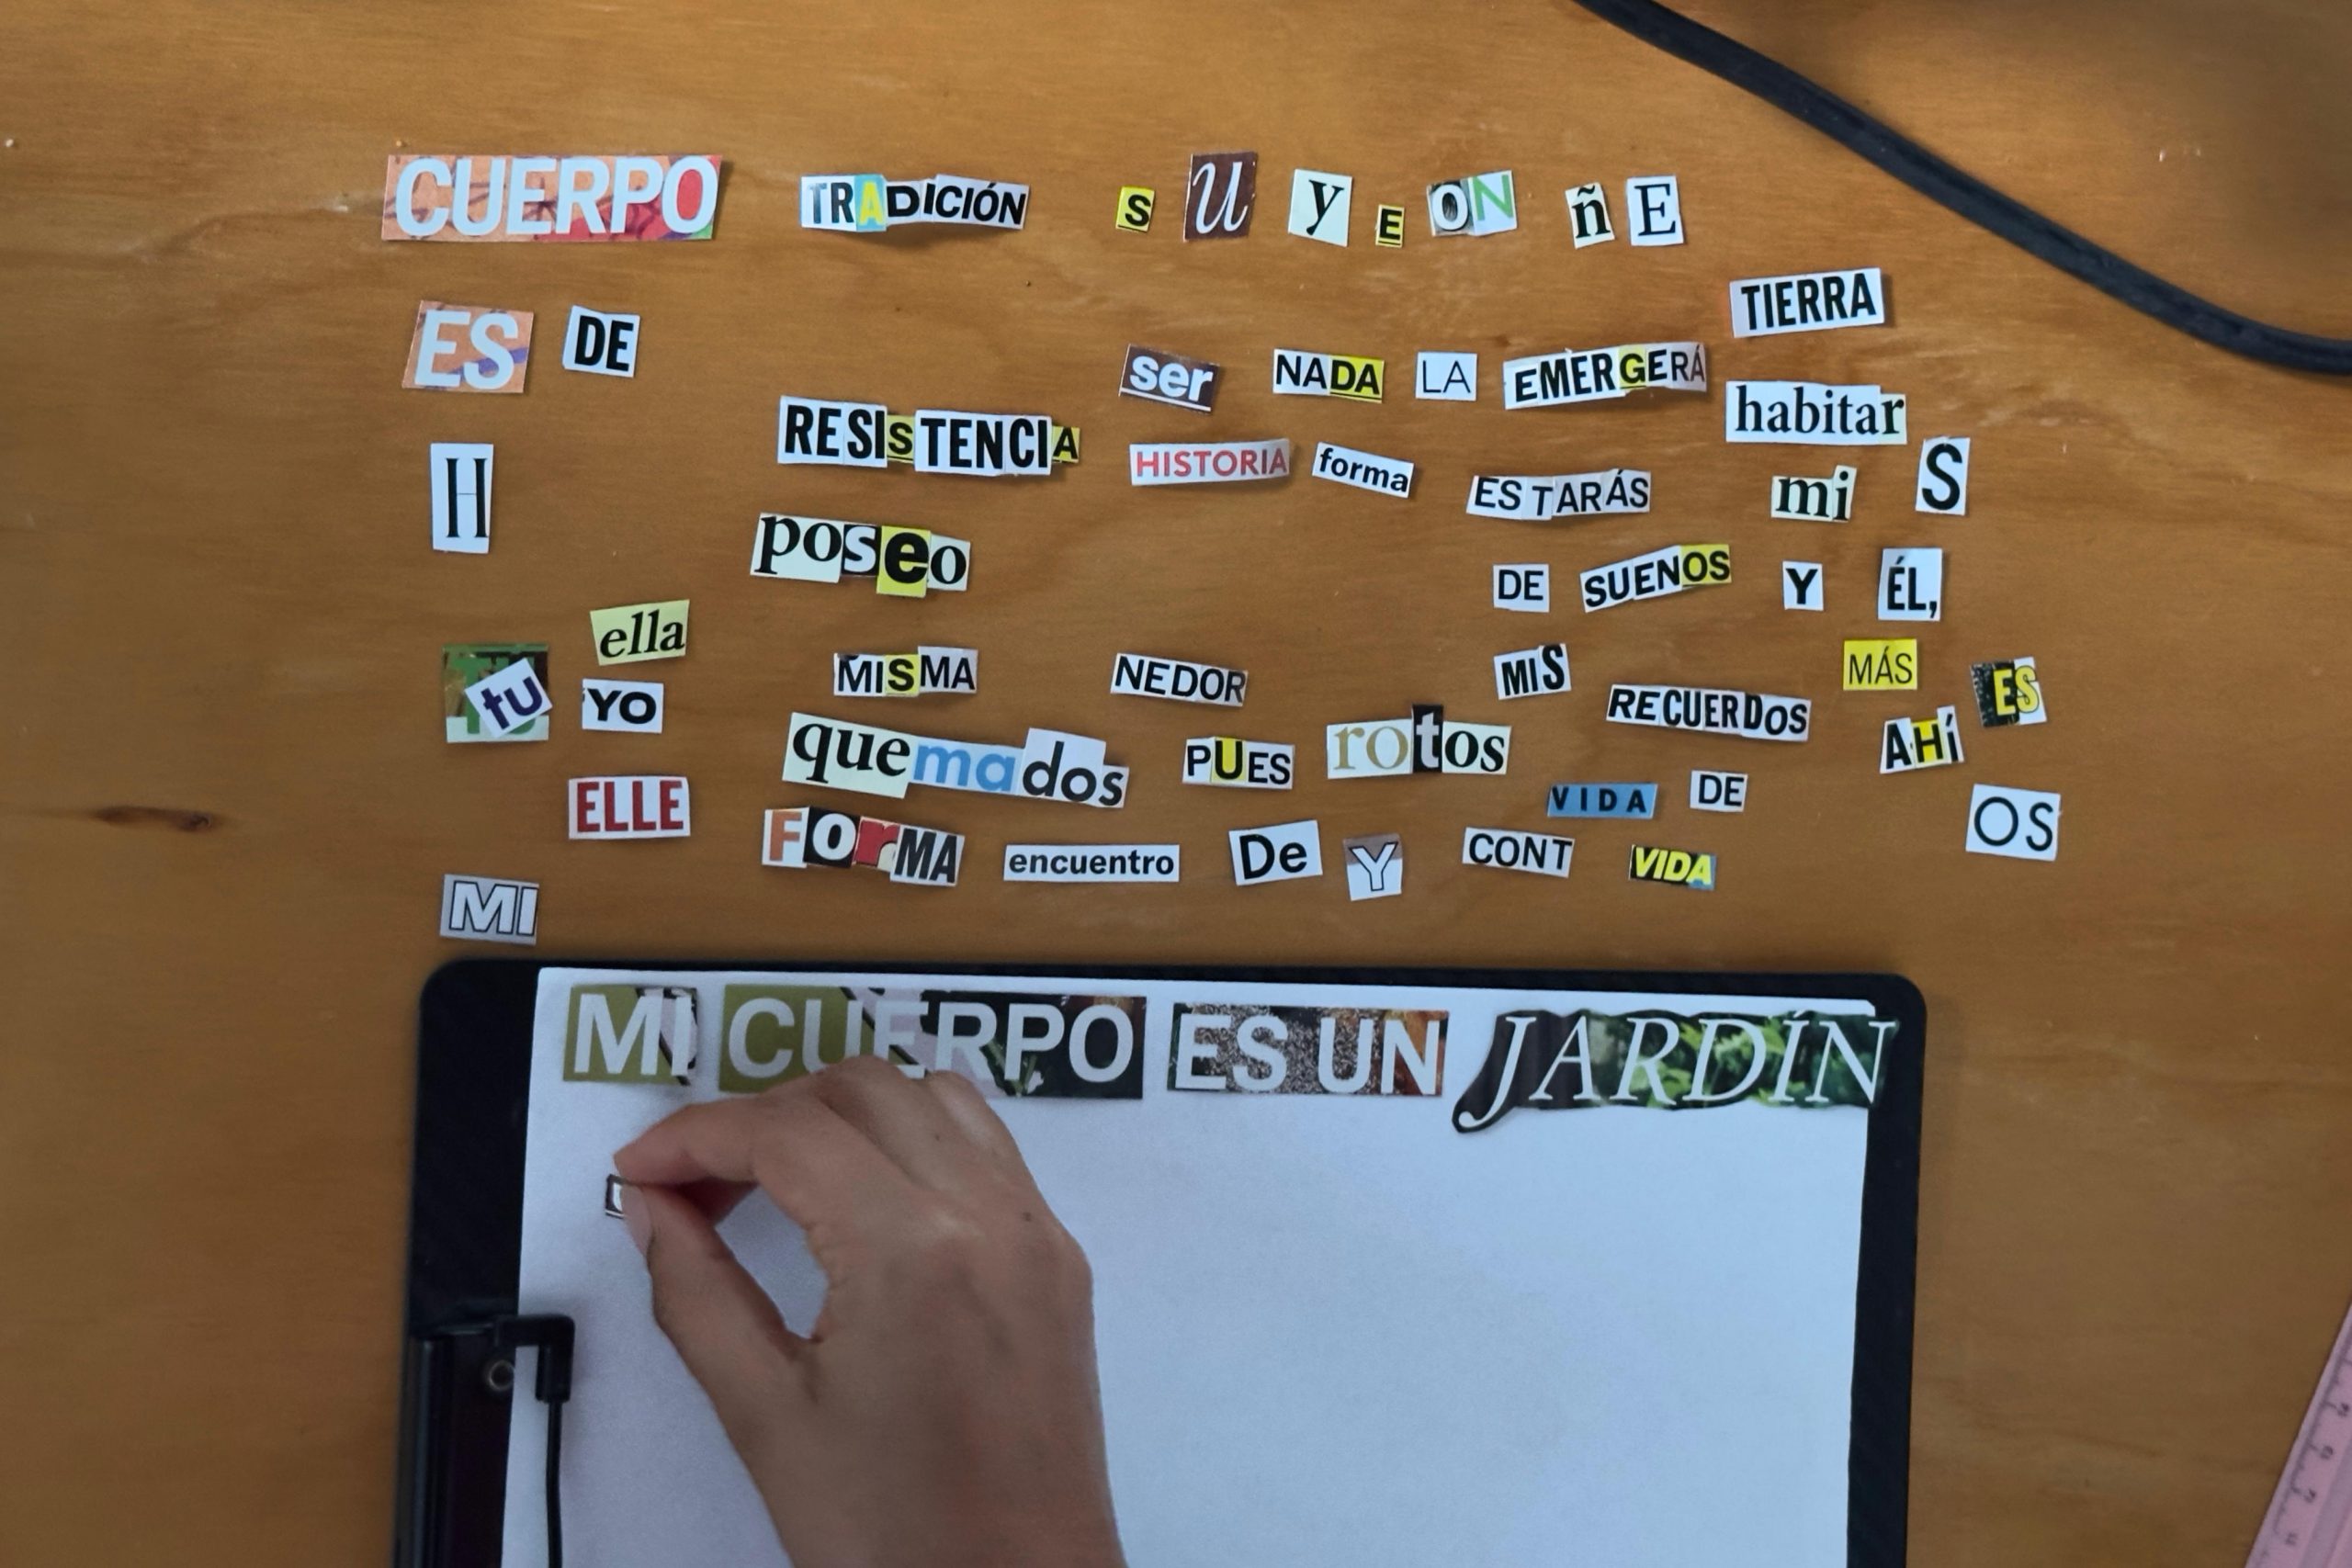 CUERPO TRADICIÓN S U y E ON ñ E
TIERRA
ES DE ser NADA LA EMERGERÁ
habitar
RESISTENCIA HISTORIA forma
H ESTARÁS mi S
poseo DE SUENOS Y ÉL,
ella
MISMA NEDOR MIS MÁS ES
tu YO RECUERDOS
quemados PUES rotos AHí
ELLE VIDA DE OS
FORMA encuentro De Y CONT VIDA
MI
MI CUERPO ES UN JARDÍN